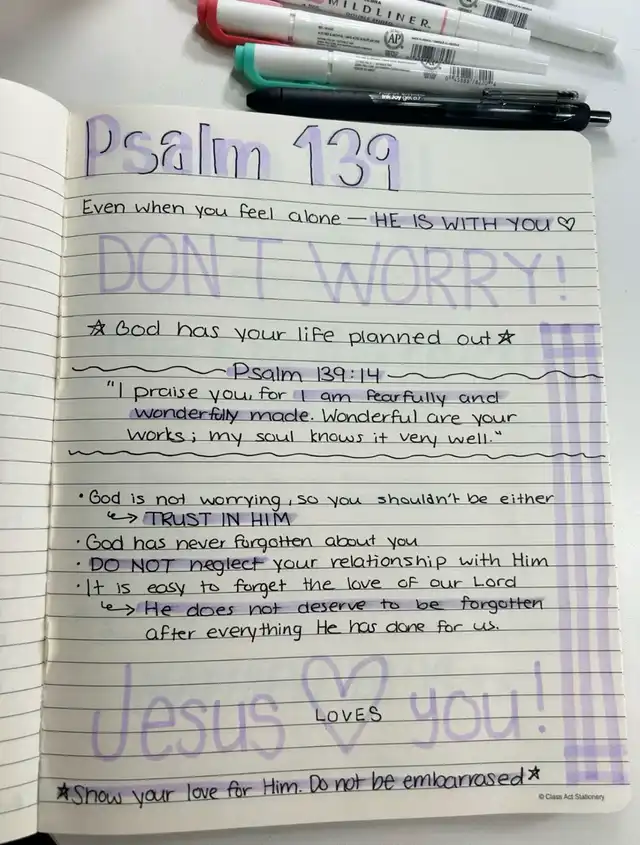 MILDLINER
AP
AP
AP
InkJoy gel 0.7
Psalm 139
Even when you feel alone — HE IS WITH YOU ♡
DON'T WORRY!
☆ God has your life planned out ☆
Psalm 139:14
"I praise you, for I am fearfully and
wonderfully made. Wonderful are your
works; my soul knows it very well."
• God is not worrying, so you shouldn't be either
↳ TRUST IN HIM
• God has never forgotten about you
• DO NOT neglect your relationship with Him
• It is easy to forget the love of our Lord
↳ He does not deserve to be forgotten
after everything He has done for us.
Jesus ♡ you!
LOVES
☆ Show your love for Him. Do not be embarrased ☆
© Class Act Stationery